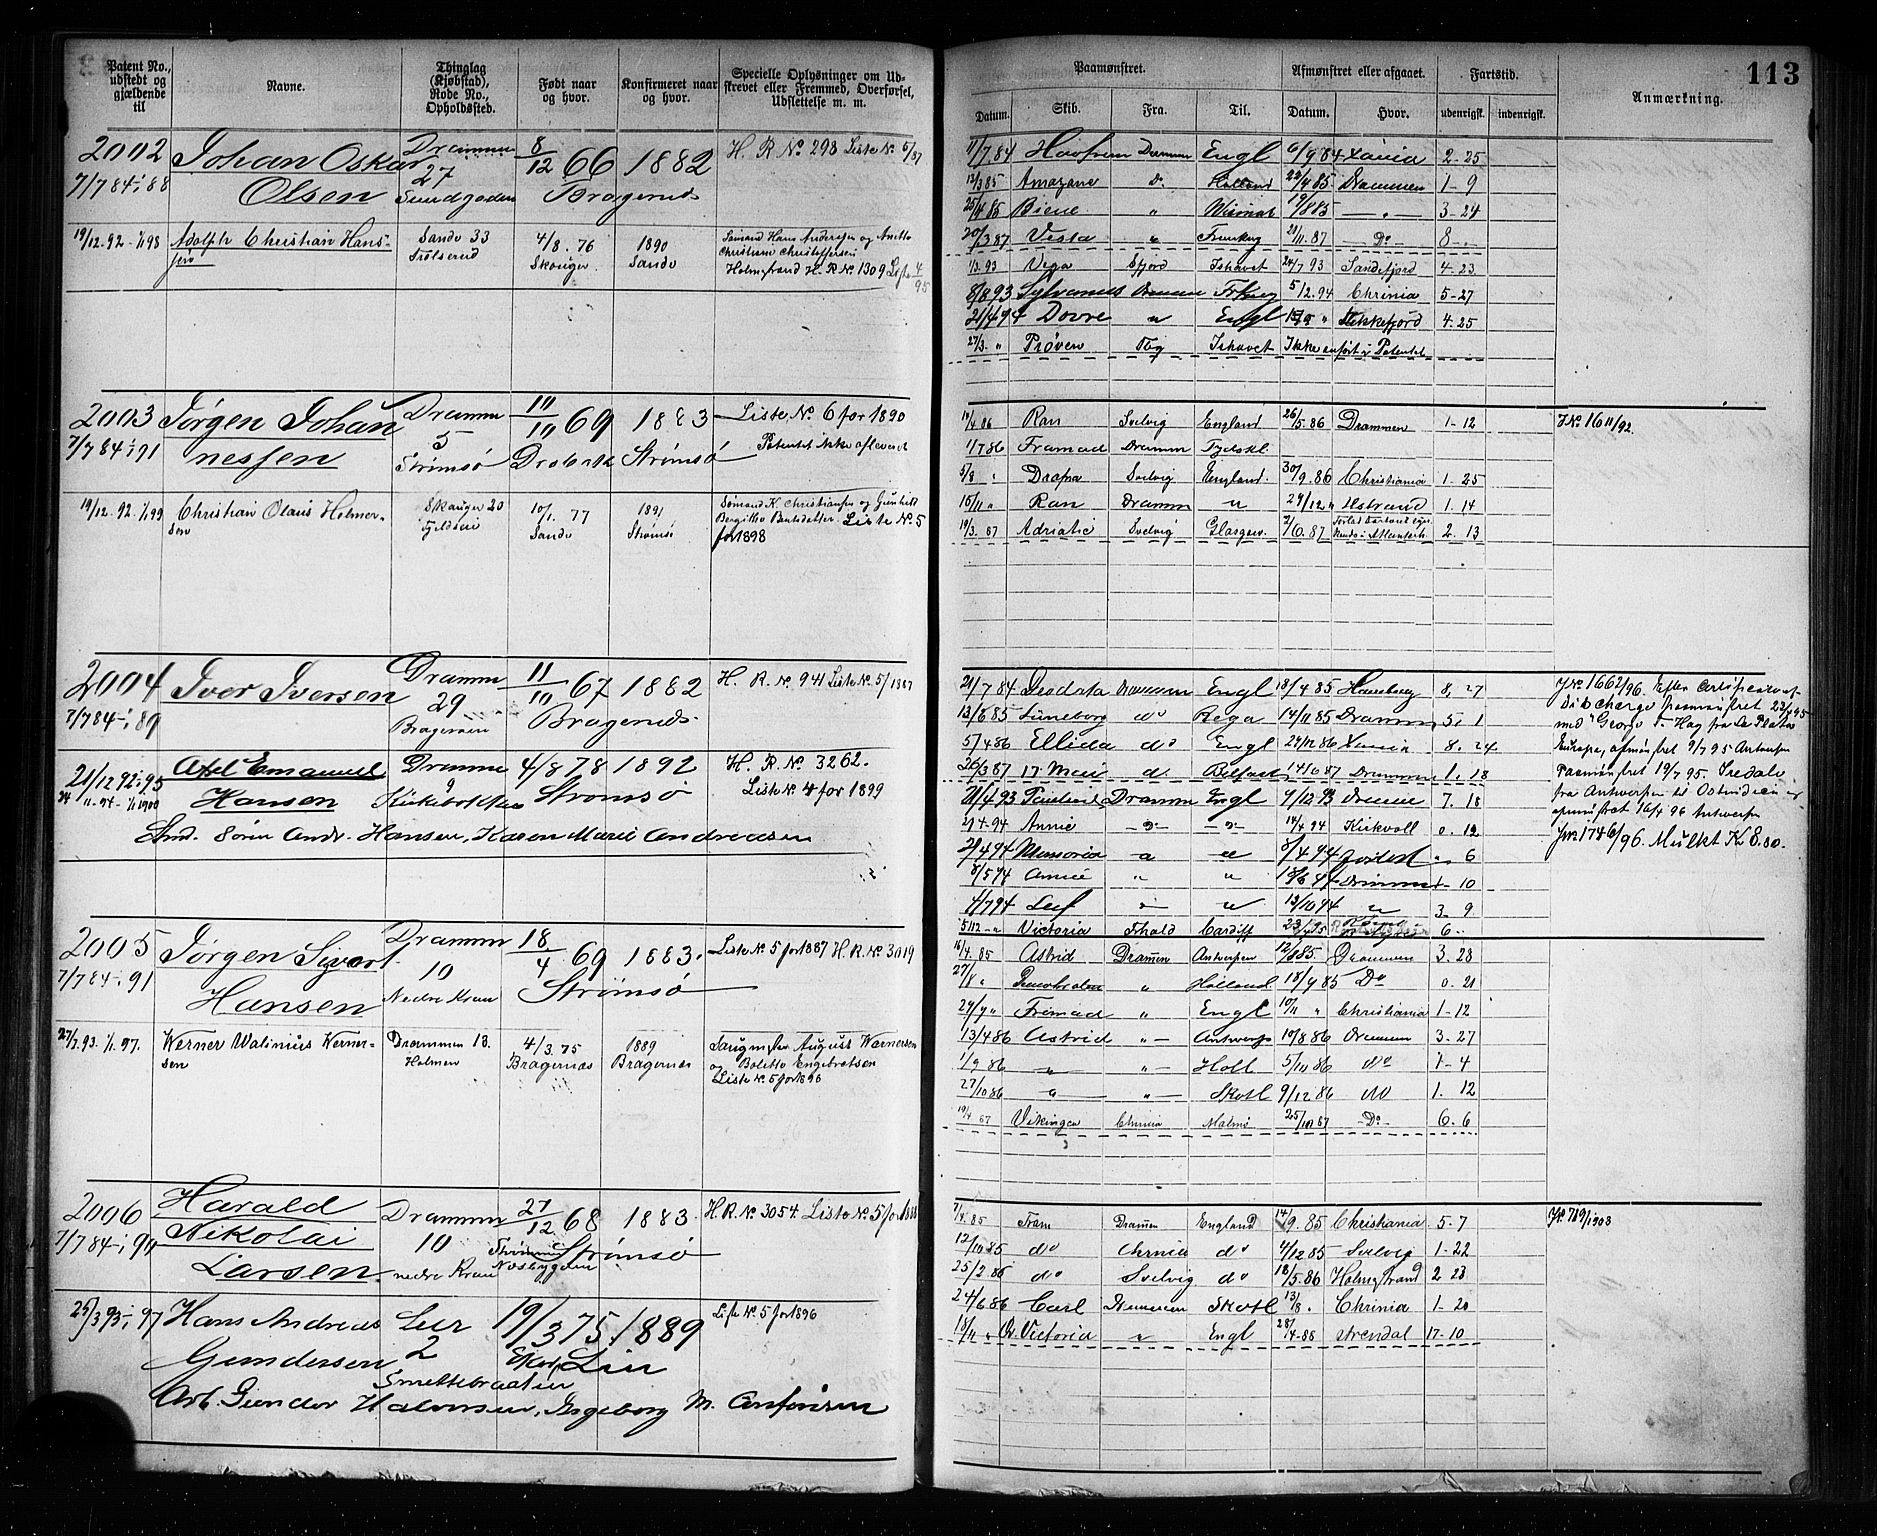 113
Patent No., udstedt og gjældende til
Navne.
Thinglag (Kjøbstad), Rode No., Opholdssted.
Født naar og hvor.
Konfirmeret naar og hvor.
Specielle Oplysninger om Udskrevet eller Fremmed, Overførsel, Udslettelse m. m.
2002 Johan Oskar Dramm 8/12 66 1882 H. R. No 298 Liste No 5/87
7/7 84-1/1 88 Olsen 27 Sundgaden Bragernæs
19/12.92-1/1 98 Adolph Christian Hans- Sande 33 4/8. 76 1890 Sømand Hans Andersen og Anette
sen Skouger Sande Christine Christoffersen
Holmstrand H. R No 1309 Liste 4/95
2003 Jørgen Johan Dramm 10/10 69 1883 Liste No 6 for 1890
7/7 84-1/1 91 nessen 5 Strømsø Drobak Strømsø Patentet ikke afleveret
19/12.92-1/1 99 Christian Olaus Holmer- Skouger 20 10/1. 77 1891 Sømand K. Christiansen og Gunhild
sen Sande Strømsø Bergitte Berntsdatter. Liste No 5
for 1898
2004 Iver Iversen Dramm 11/10 67 1882 H. R. No. 941 Liste No. 5/1887
7/7 84-1/1 89 29 Bragernæs
21/12 92-95 Axel Emanuel Dramm 4/8 78 1892 H. R. No. 3262.
Hansen 9 Kirkebakken Strømsø Liste No 4 for 1899
Smd. Søren Andr. Hansen, Karen Marie Andreasen
2005 Jørgen Sigvart Dramm 18/4 69 1883. Liste No. 5 for 1887 H. R. No. 3019
7/7 84-1/1 91 Hansen 10 Nedre Kran Strømsø
27/7.93. 1/1. 97. Werner Valinius Werner- Drammen 18. 4/3. 75 1889 August Wernersen
sen Holmen Bragernæs Bragernæs og Bolette Engebretsen
Liste No. 5 for 1896
2006 Harald Dramm 27/12 68 1883. H. R. No. 3054. Liste No. 5 for 1888
7/7 84-1/1 90 Nikolai 10 Strømsø
Larsen nedre Kran
25/3 93-1/1 97 Hans Andreas Lier 19/3 75. 1889 Liste No. 5 for 1896
Gundersen 2 Lier
Arb. Gunder Halvorsen, Ingeborg M.
Paamønstret.
Afmønstret eller afgaaet.
Fartstid.
Anmærkning.
Datum. Skib. Fra: Til. Datum. Hvor. udenrigsk. indenrigsk.
11/7 84 Dramm Engl 6/9 84 Xania 2-25
12/3 85 Amazone Do Holland 22/4 85 Drammen 1-9
25/4 85 Biene " Wismar 19/8 85 " 3-24
20/3 87 Vesta " 21/11.87 Do 8-
1/3.93 Vega Ishavet 24/7 93 Sandefjord 4-23
8/8 93 Sylvanus Drammen 5/12.94 Chrinia 5-27
21/4 94 Dovre " Engl Flekkefjord 4-25
27/3. " Prøven Tbg Ishavet Ikke anført i Patentet
Ran Svelvig England 26/5.86 Drammen 1-12
1/7 86 Framad Dramm
5/8 " Drapa Svelvig England. 30/9.86 Christiania 1-25
15/11 " Ran Dramm " 29/12 " 1.14
19/3.87 Adriatic Svelvig Glasgow. 2/6.87 2.13
J No. 16 11/92.
21/7 84 Drammen Engl 18/4 85 Hamburg 8, 27
13/6 85 Lüneborg do Riga 14/11 85 Dramm 5, 1
5/4 86 Ellida do Engl 29/12 86 Xania 8. 24
26/3 87 17 Mai d. Belfast 14/6 87 Dramm 1. 18
21/4 93 Dramm Engl 9/12 93 7. 18
Annie Do Do 14/4 94 Kirkvall 0. 12
21/4 94 Memoria " " 8/4 94 " 6
8/5 94 Annie " " Dramm 1-10
4/7 94 Leif " " 13/10 94 " 3-9
5/12 " Victoria Fhald Cardiff 6-
J No 1662/96. Efter Certificate of
Discharge paamønstret 22/4 95
med "George T. Hay fra La Plata
Europa, afmønstret 9/7 95 Antwerpen
Paamønstret 19/7 95. Iredale
fra Antwerpen til Ostindien og
afmønstret 16/4 96 Antwerpen
J No. 1746/96. Mulkt Kr 8.00.
16/4.85 Astrid Drammen Antwerpen 12/8 85. Drammen 3.28
27/8 " " Holland 18/9 85 Do 0.21
29/9 " Framad " Engl 10/11 " Christiania 1-12
13/4 86 Astrid " Antwerp 10/8 86 Drammen 3.27
1/9 86 " " Holl 5/10 86 do 1-4
27/10 86 " " Skotl 9/12 86 do 1. 12
19/4 87 Vikingen Chrinia Malmø 25/10 87 Do 6.6
7/4.85 Fram Drammen England 14/9.85 Christiania 5-7
12/10 85 do Chrnia do 4/12 85 Svelvig 1-22
25/2 86 do Svelvig do 18/5.86 Holmestrand 2.23
24/6 86 Carl Drammen Skotl 13/8. Chrinia 1-20
18/11 " Victoria " Engl 28/4-88 Arendal 17-10
J No. 789/1903